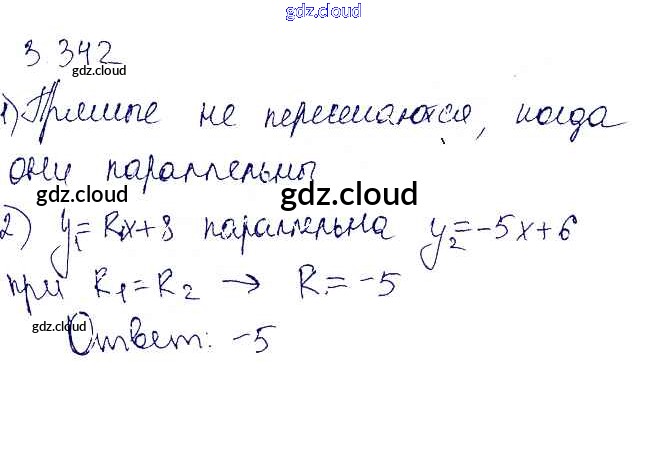 gdz.cloud
3.342
gdz.cloud
1) Прямые не пересекаются, когда
они параллельны
gdz.cloud
gdz.cloud
2) y₁=kx+8 параллельна y₂=-5x+6
gdz.cloud
при k₁=k₂ → k=-5
gdz.cloud
Ответ: -5